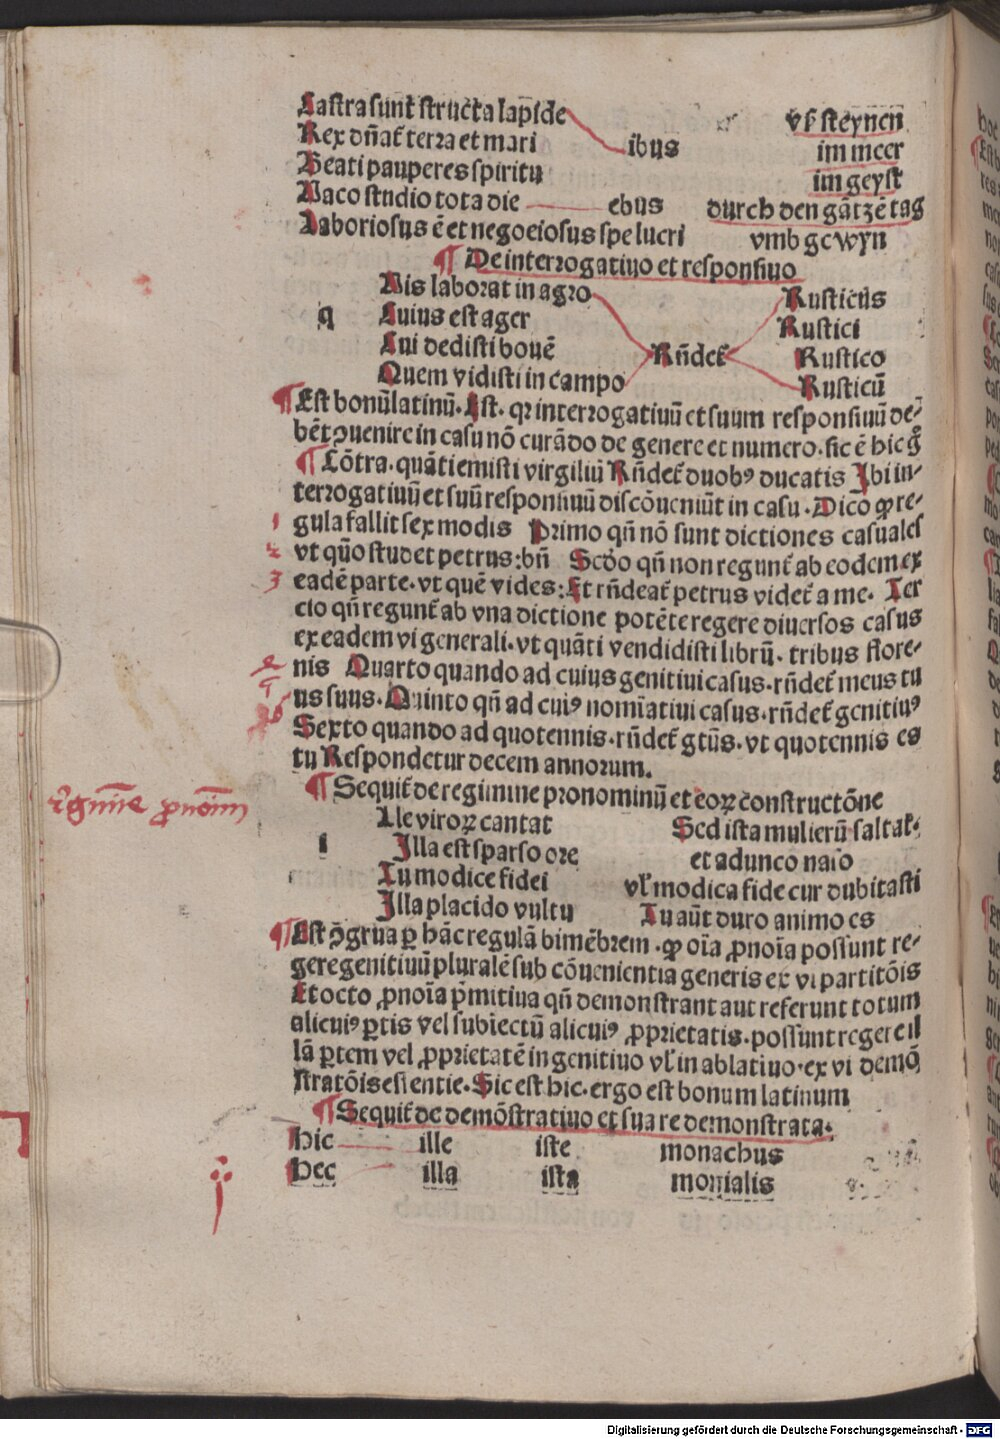 Castra sunt̄ structa lapide vß steynen
Rex dn̄at̄ terra et mari ibus im meer
Beati pauperes spiritu im geyst
Vaco studio tota die ebus durch den gātzē tag
Laboriosus ē et negociosus spe lucri vmb gewyn
¶ De interrogatiuo et responsiuo
Vis laborat in agro Rusticus
q Cuius est ager Rustici
Cui dedisti bouē Rn̄det̄ Rustico
Quem vidisti in campo Rusticū
¶ Est bonū latinū. Est. qꝛ interrogatiuū et suum responsiuū de-
bēt ꝯuenire in casu nō curādo de genere et numero. sic ē hic g̊
¶ Cōtra. quāti emisti virgiliū Rn̄det̄ duobꝰ ducatis Ibi in-
terrogatiuū et suū responsiuū discōueniūt in casu. Dico ꝙ re-
1 gula fallit sex modis Primo qn̄ nō sunt dictiones casuales
2 vt quō studet petrus: bn̄ Scdo qn̄ non regunt̄ ab eodem ex
3 eadē parte. vt quē vides: Et rn̄deat̄ petrus videt̄ a me. Ter
cio qn̄ regunt̄ ab vna dictione potēte regere diuersos casus
ex eadem vi generali. vt quāti vendidisti librū. tribus flore-
nis Quarto quando ad cuius genitiui casus. rn̄det̄ meus tu
us suus. Quinto qn̄ ad cuiꝰ nomiatiui casus. rn̄det̄ genitiuꝰ
Sexto quando ad quotennis. rn̄det̄ gtūs. vt quotennis es
tu Respondetur decem annorum.
¶ Sequit̄ de regimine pronominū et eoꝝ constructōne
Lle viroꝝ cantat Sed ista mulierū saltat̄.
i Illa est sparso ore et adunco naso
Tu modice fidei vl̄ modica fide cur dubitasti
Illa placido vultu Tu aūt duro animo es
¶ Est ꝯgrua ꝑ hāc regulā bimēbrem. ꝙ oīa ꝓnoīa possunt re-
gere genitiuū pluralē sub cōuenientia generis ex vi partitōis
Et octo ꝓnoīa p̄mitiua qn̄ demonstrant aut referunt totum
alicuiꝰ ꝑtis vel subiectū alicuiꝰ ꝓprietatis. possunt regere il
lā ꝑtem vel ꝓprietatē in genitiuo vl̄ in ablatiuo. ex vi demō
stratōis essentie. Sic est hic. ergo est bonum latinum
¶ Sequit̄ de demōstratiuo et sua re demonstrata.
Hic ille iste monachus
Hec illa ista monialis
Digitalisierung gefördert durch die Deutsche Forschungsgemeinschaft - DFG